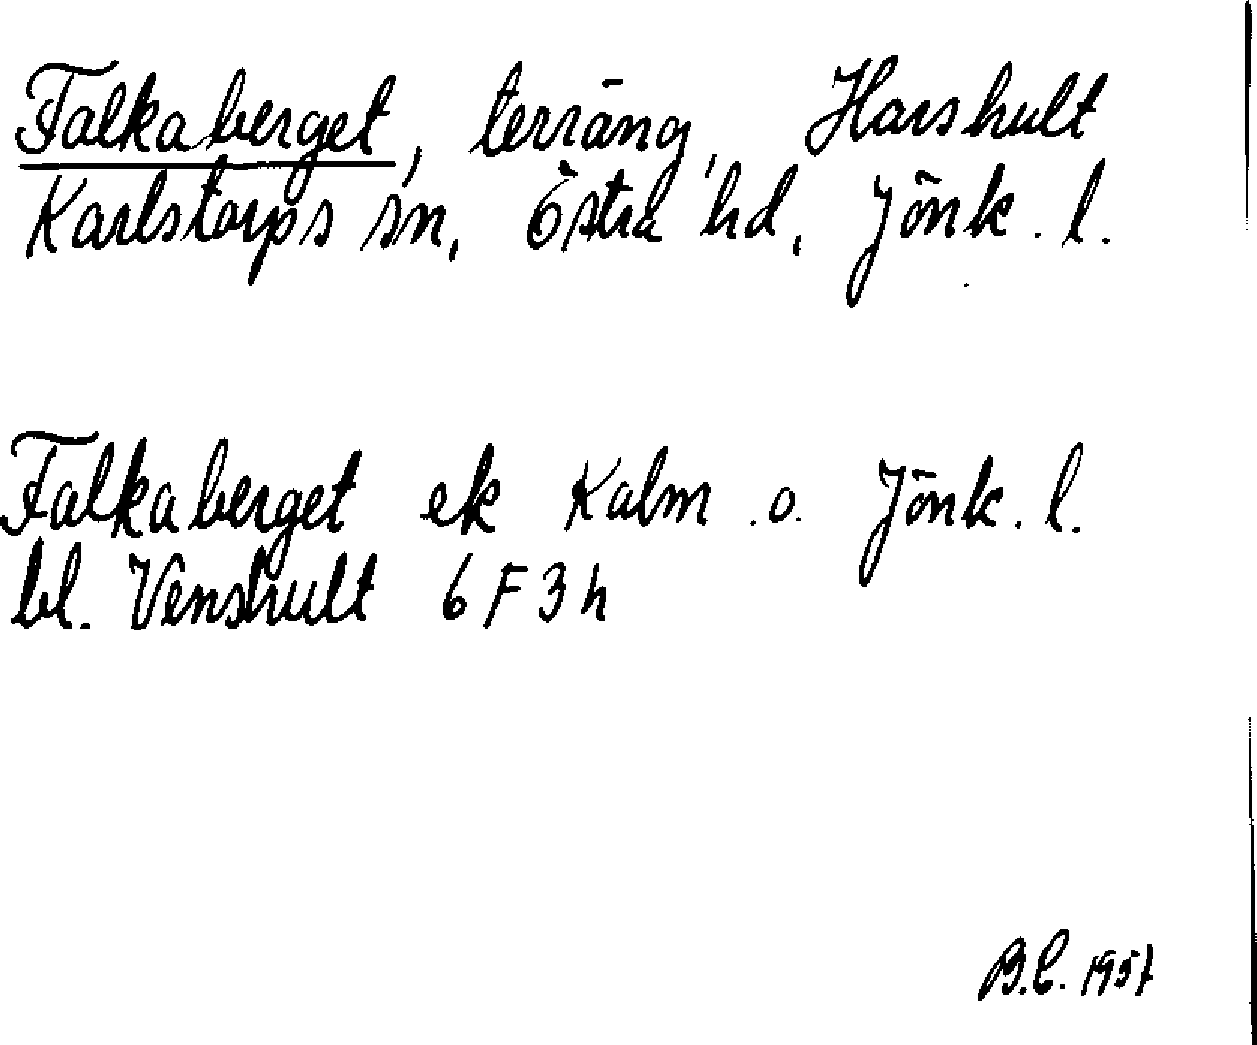 Falkaberget, terräng, Harshult
Karlstorps sn, Östra hd, Jönk. l.
Falkaberget ek Kalm. o. Jönk. l.
bl. Venshult 6 F 3 h
B.E. 1957